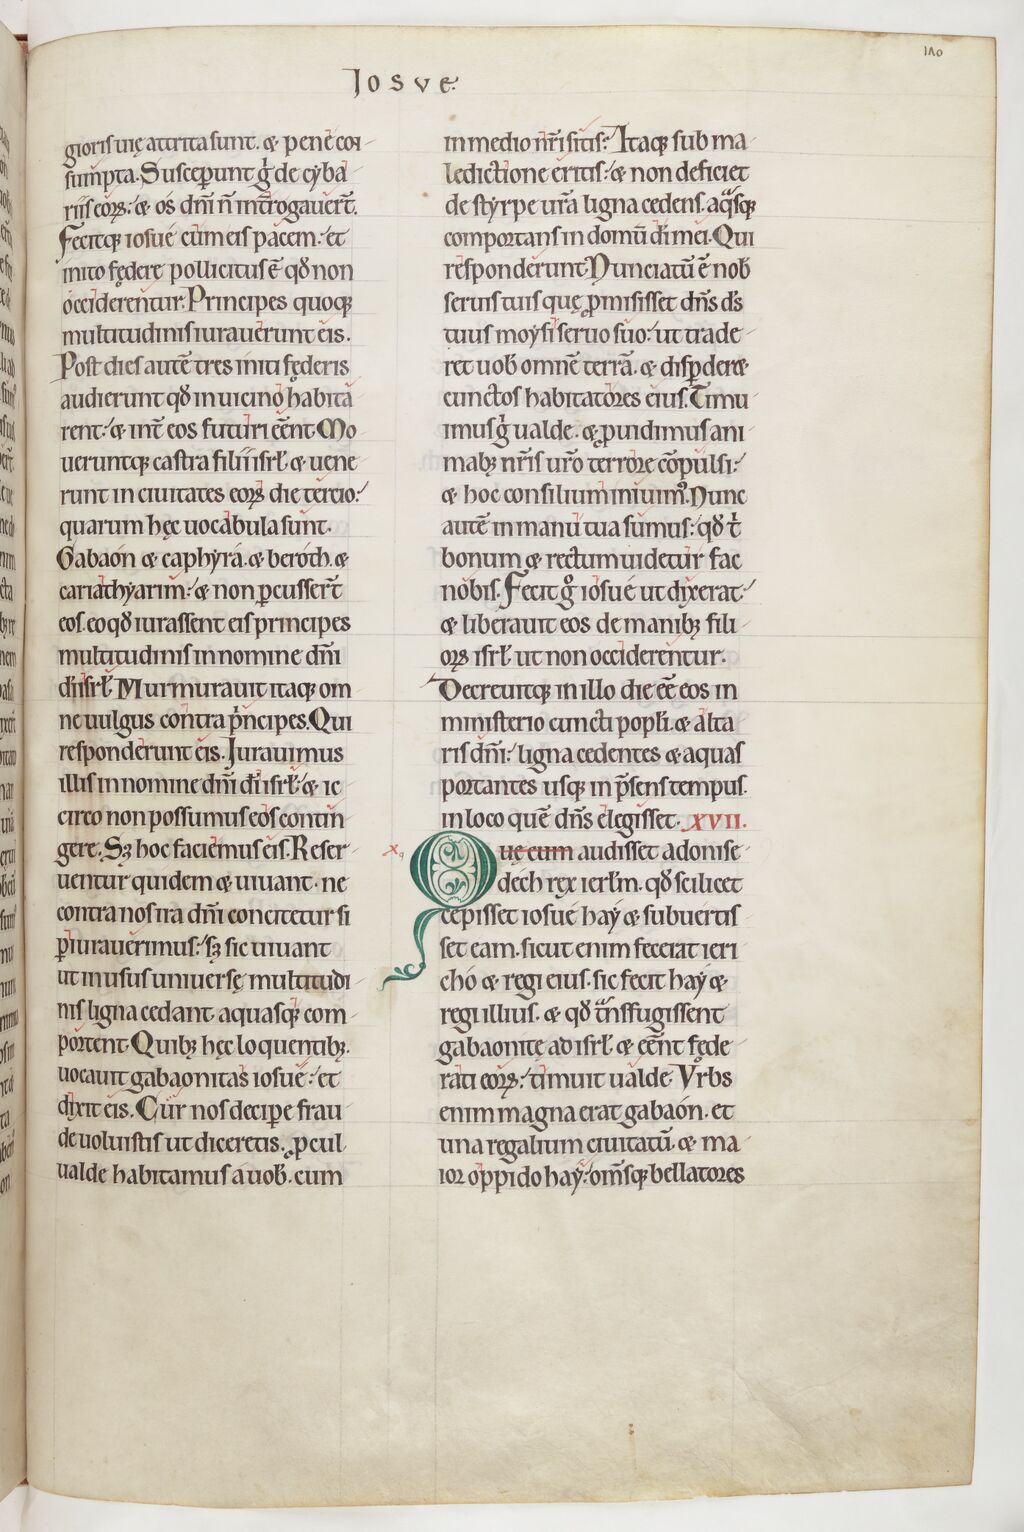 Iosve.
110
gioris uię attrita sunt. & pene con-
sumpta. Susceperunt g̊ de cyba-
riis eorꝫ: & os dn̄i n̄ int̄rogauer̄t.
Fecitq; iosue cum eis pacem: et
inito fędere pollicitus ē qđ non
occiderentur. Principes quoq;
multitudinis iurauerunt eis.
Post dies autē tres initi fęderis
audierunt qđ in uicino habita-
rent: & int̄ eos futuri ēent. Mo-
ueruntq; castra filii isrł & uene-
runt in ciuitates eorꝫ die tercio:
quarum hęc uocabula sunt.
Gabaon & caphyra. & beroth. &
cariathyarim: & non ꝑcusser̄t
eos. eo qđ iurassent eis principes
multitudinis in nomine dn̄i
dī isrł. Murmurauit itaq; om-
ne uulgus contra pⁱncipes. Qui
responderunt eis. Iurauimus
illis in nomine dn̄i dī isrł: & ic-
circo non possumus eos contin-
gere. Sꝫ hoc faciemus eis. Reser-
uentur quidem & uiuant. ne
contra nos ira dn̄i concitetur si
ꝑiurauerimus: sꝫ sic uiuant
ut in usus uniuersę multitudi-
nis ligna cedant. aquasq; com-
portent. Quibꝫ hęc loquentibꝫ.
uocauit gabaonitas iosue: et
dixit eis. Cur nos decipe frau-
de uoluistis ut diceretis. ꝓcul
ualde habitamus a uob̄. cum
in medio nr̄i sitis: Itaq; sub ma-
ledictione eritis: & non deficiet
de styrpe ur̄a ligna cedens. aqᵃsq;
comportans in domū dī mei. Qui
responderunt. Nunciatū ē nob̄
seruis tuis quę ꝓmisisset dn̄s ds̄
tuus moysi seruo suo: ut trade-
ret uob̄ omnē terrā. & disꝑdere
cunctos habitatores eius. Timu-
imus gⁱ ualde. & ꝓuidimus ani-
mabꝫ nr̄is ur̄o terrore cōpulsi:
& hoc consilium iniuimꝰ. Nunc
autē in manu tua sumus: qđ tⁱ
bonum & rectum uidetur fac
nobis. Fecit g̊ iosue ut dixerat:
& liberauit eos de manibꝫ fili-
orꝫ isrł ut non occiderentur.
Decreuitq; in illo die ēe eos in
ministerio cuncti popłi. & alta-
ris dn̄i: ligna cedentes & aquas
portantes usq; in p̄sens tempus.
in loco quē dn̄s elegisset. XVII.
x,
Quę cum audisset adonise-
dech rex ierłm. qđ scilicet
cepisset iosue hay & subuertis-
set eam. sicut enim fecerat ieri-
cho & regi eius. sic fecit hay &
regi illius. & qđ tᵃnsfugissent
gabaonitę ad isrł. & ēent fęde-
rati eorꝫ: timuit ualde. Vrbs
enim magna erat gabaon. et
una regalium ciuitatū. & ma-
ior oppido hay: om̄sq; bellatores